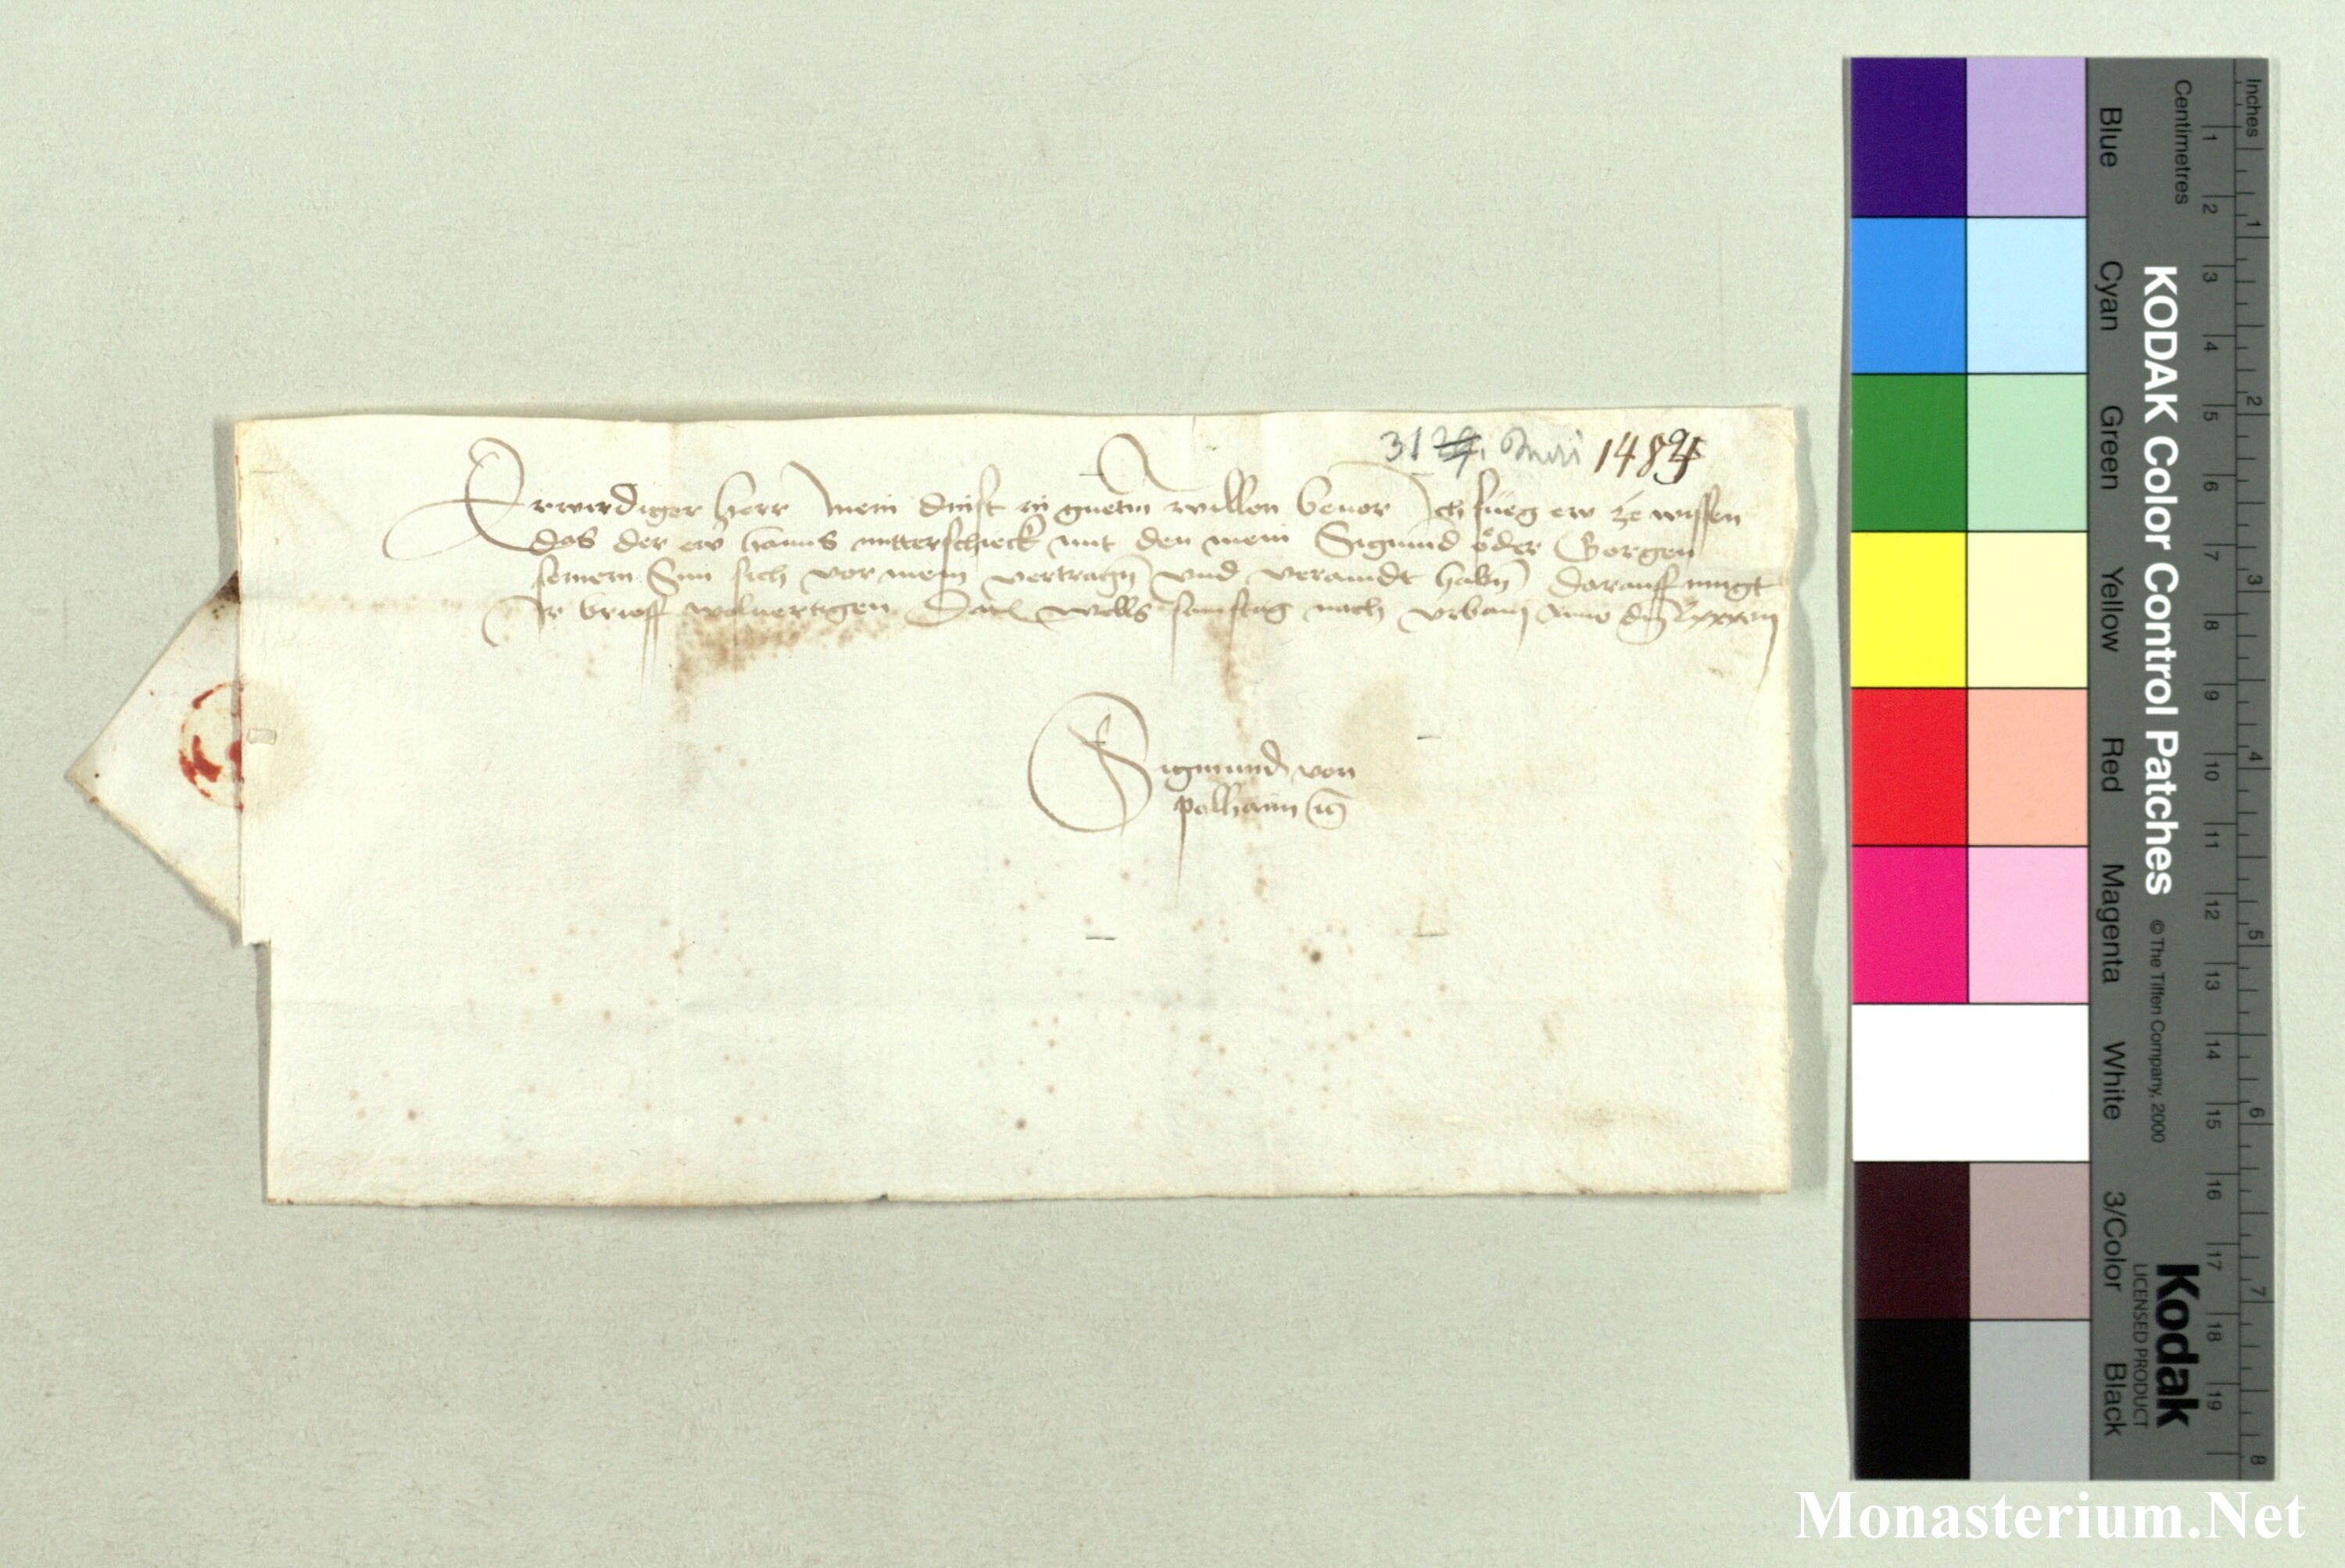 31 29. Mai 1484
Erwirdiger herr mein dinst in guetm willen beuor Ich füeg ew ze wissen
das der ew hanns mitterschieck mit den mein Sigmund öder Gorgen
seinem Sun sich vor mein vertragn und veraindt habn darauff mugt
Ir brieff verttigen Datu wells samstag nach vrbani Anno dni
Sigmund von
polhaim
KODAK Color Control Patches © The Tiffen Company, 2000
Kodak
LICENSED PRODUCT
Blue
Cyan
Green
Yellow
Red
Magenta
White
3/Color
Black
Centimetres
1 2 3 4 5 6 7 8 9 10 11 12 13 14 15 16 17 18 19
Inches
1 2 3 4 5 6 7 8
Monasterium.Net